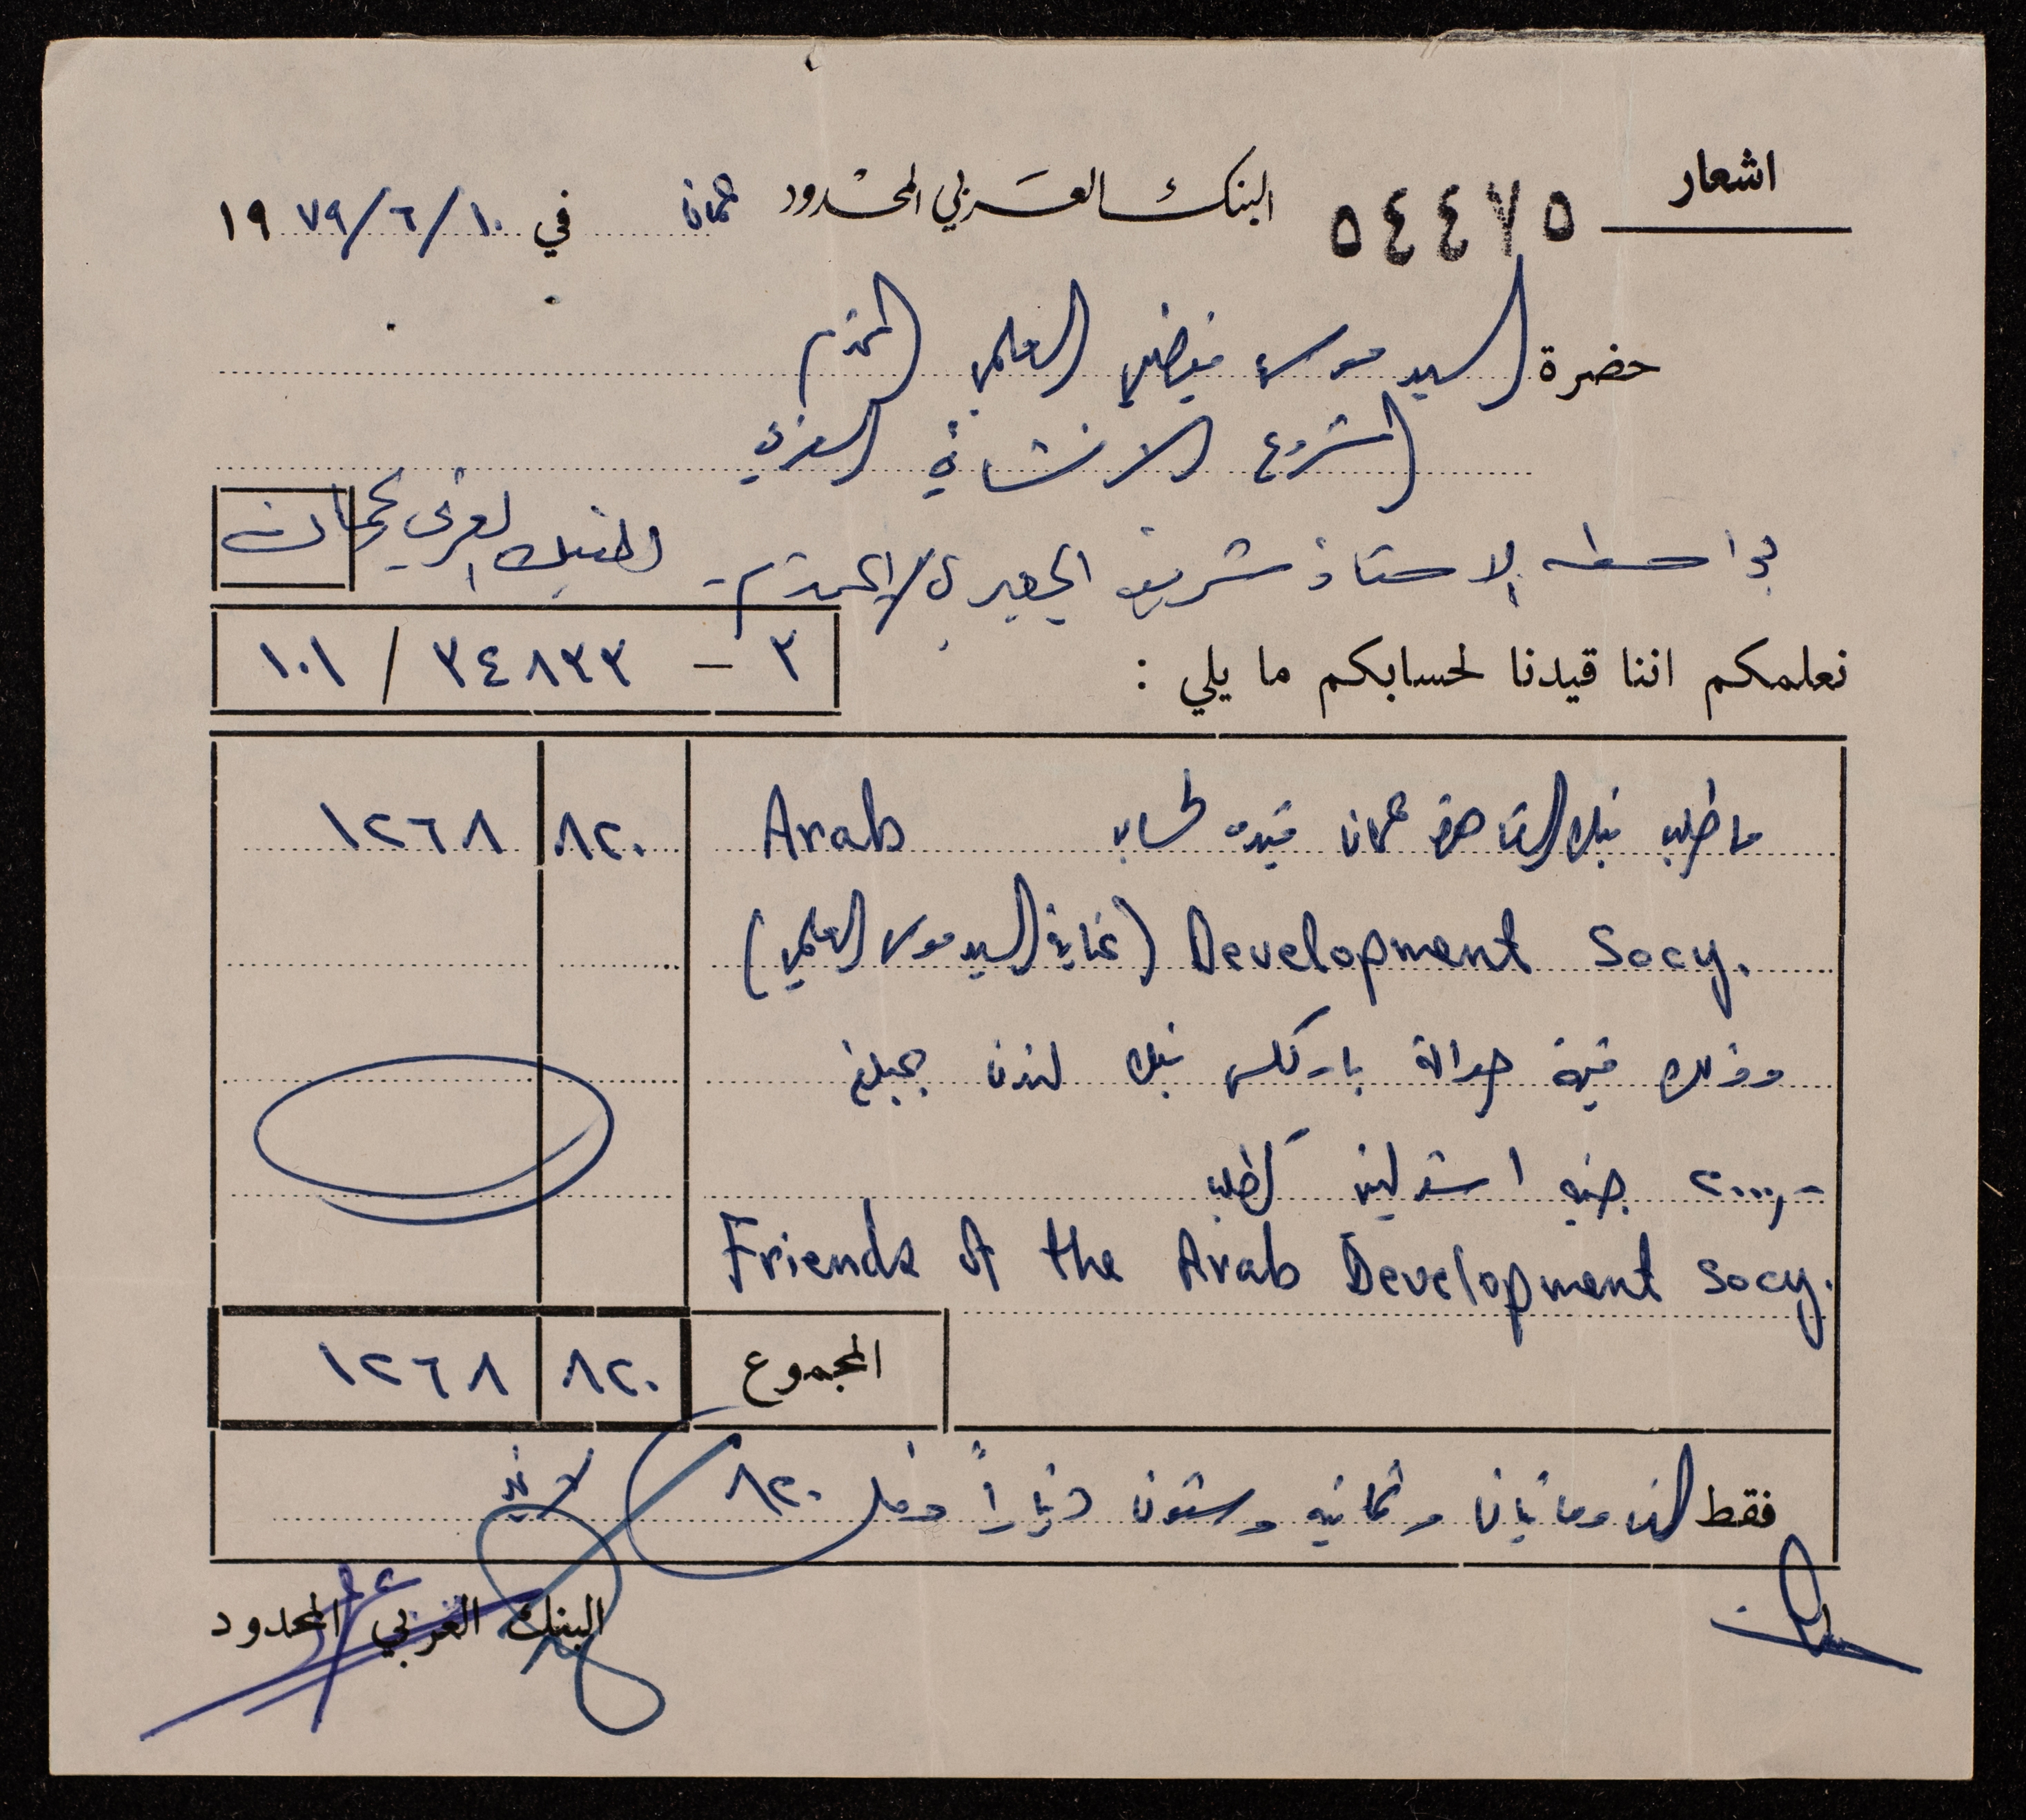 اشعار
٥٤٤٧٥ البنك العربي المحدود عمان في ١٠/٦/١٩٧٩
حضرة السيد موسى فيضي العلمي المحترم
المشروع الانشائي العربي
بواسطة الاستاذ شريف الجعبري المحترم - البنك العربي عمان
نعلمكم اننا قيدنا لحسابكم ما يلي : ٢ - ٣٤٨٢٣ / ١٠١
ما طلب بنك عمان قيده لحساب Arab ٨٢٠ ١٢٦٨
Development Socy. (عناية السيد موسى العلمي)
وذلك قيمة حوالة باركلس بنك لندن بمبلغ
٢٠٠٠,- جنيه استرليني بطلب
Friends of the Arab Development Socy.
المجموع ٨٢٠ ١٢٦٨
فقط الف ومائتان وثمانية وستون ديناراً و فلس ٨٢٠ لا غير
البنك العربي المحدود